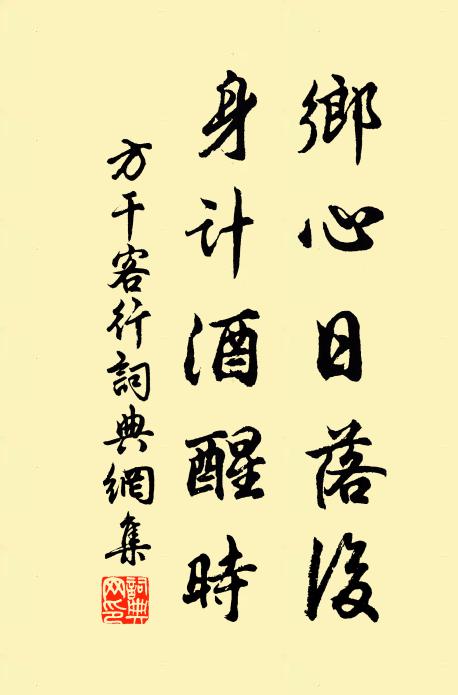 鄉心日落後
身计酒醒時
方干客行詞典網集
詞典
网印